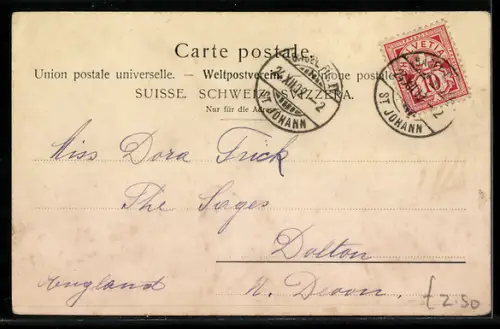 Carte postale.
Union postale universelle. - Weltpostverein. - Unione postale
SUISSE. SCHWEIZ. SVIZZERA.
Nur für die Adresse
ST JOHANN
HELVETIA
10
ST JOHANN
Miss Dora Frick
The Sages
Dolton
England
N. Devon.
£2.50